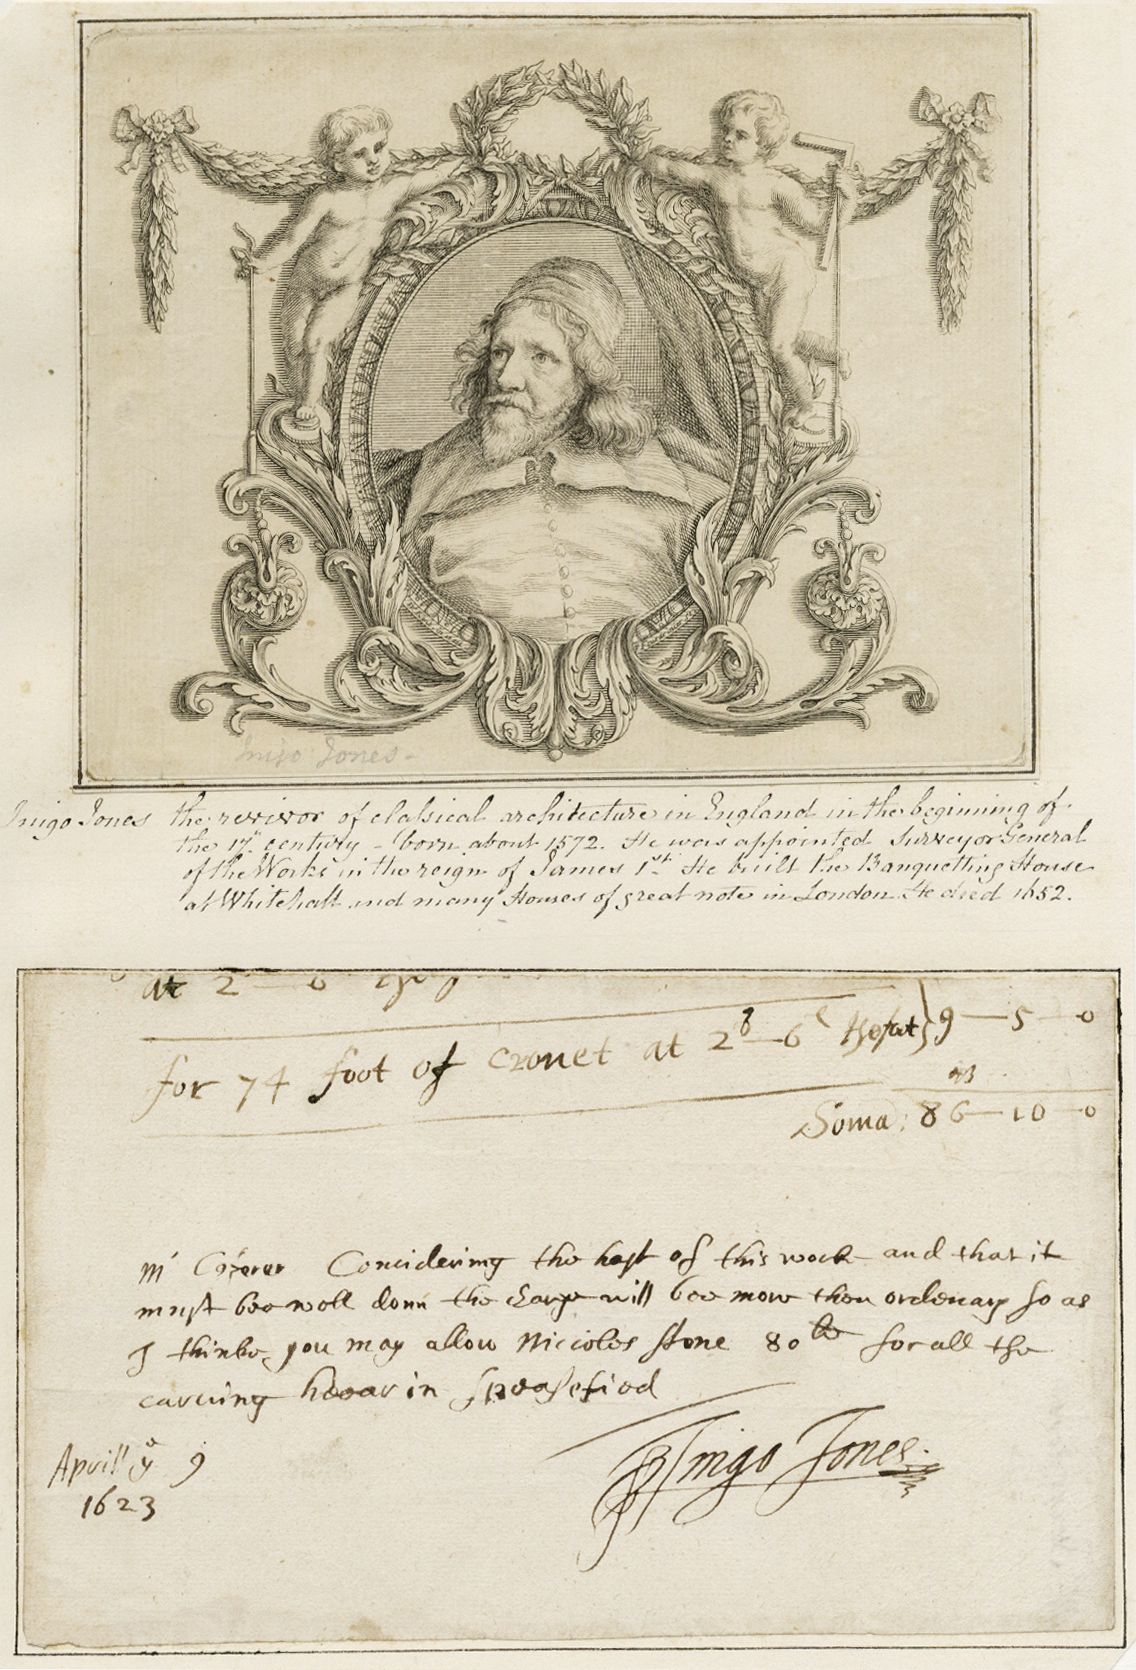 Inigo Jones-
Inigo Jones the revivor of classical architecture in England in the beginning of
the 17th. century - born about 1572. He was appointed Surveyor General
of the Works in the reign of James 1st. He built the Banquetting House
at Whitehall and many Houses of great note in London. He died 1652.
at 2 — 0
for 74 foot of cronet at 2s—6d 9—5—0
Soma: 86—10—0
mr Considering the hast of this work and that it
must bee well donn the charge will bee more then ordenary so as
I thinke you may allow Niccoles Stone 80 li for all the
carving hearin spesefied
Aprill ye 9
1623
Inigo Jones